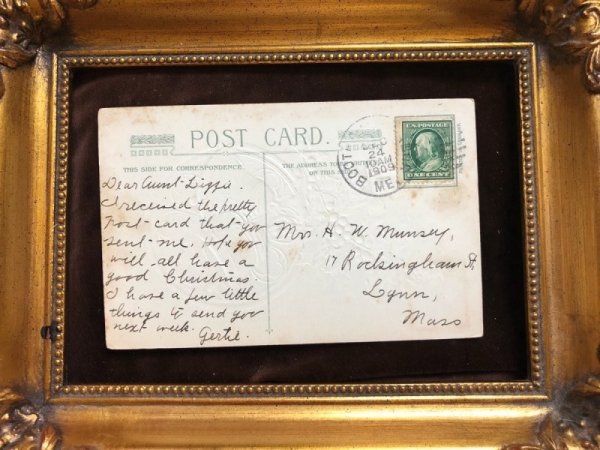 POST CARD.
THIS SIDE FOR CORRESPONDENCE
THE ADDRESS TO
ON THIS
Dear Aunt Lizzie.
I received the pretty
Post-card that you
sent me. Hope you
will all have a
good Christmas.
I have a few little
things to send you
next week.
Gertie.
BOOT
DEC
24
10 AM
1909
ME
U.S. POSTAGE
ONE CENT
Mrs. H. W. Munsey,
17 Rockingham St,
Lynn,
Mass